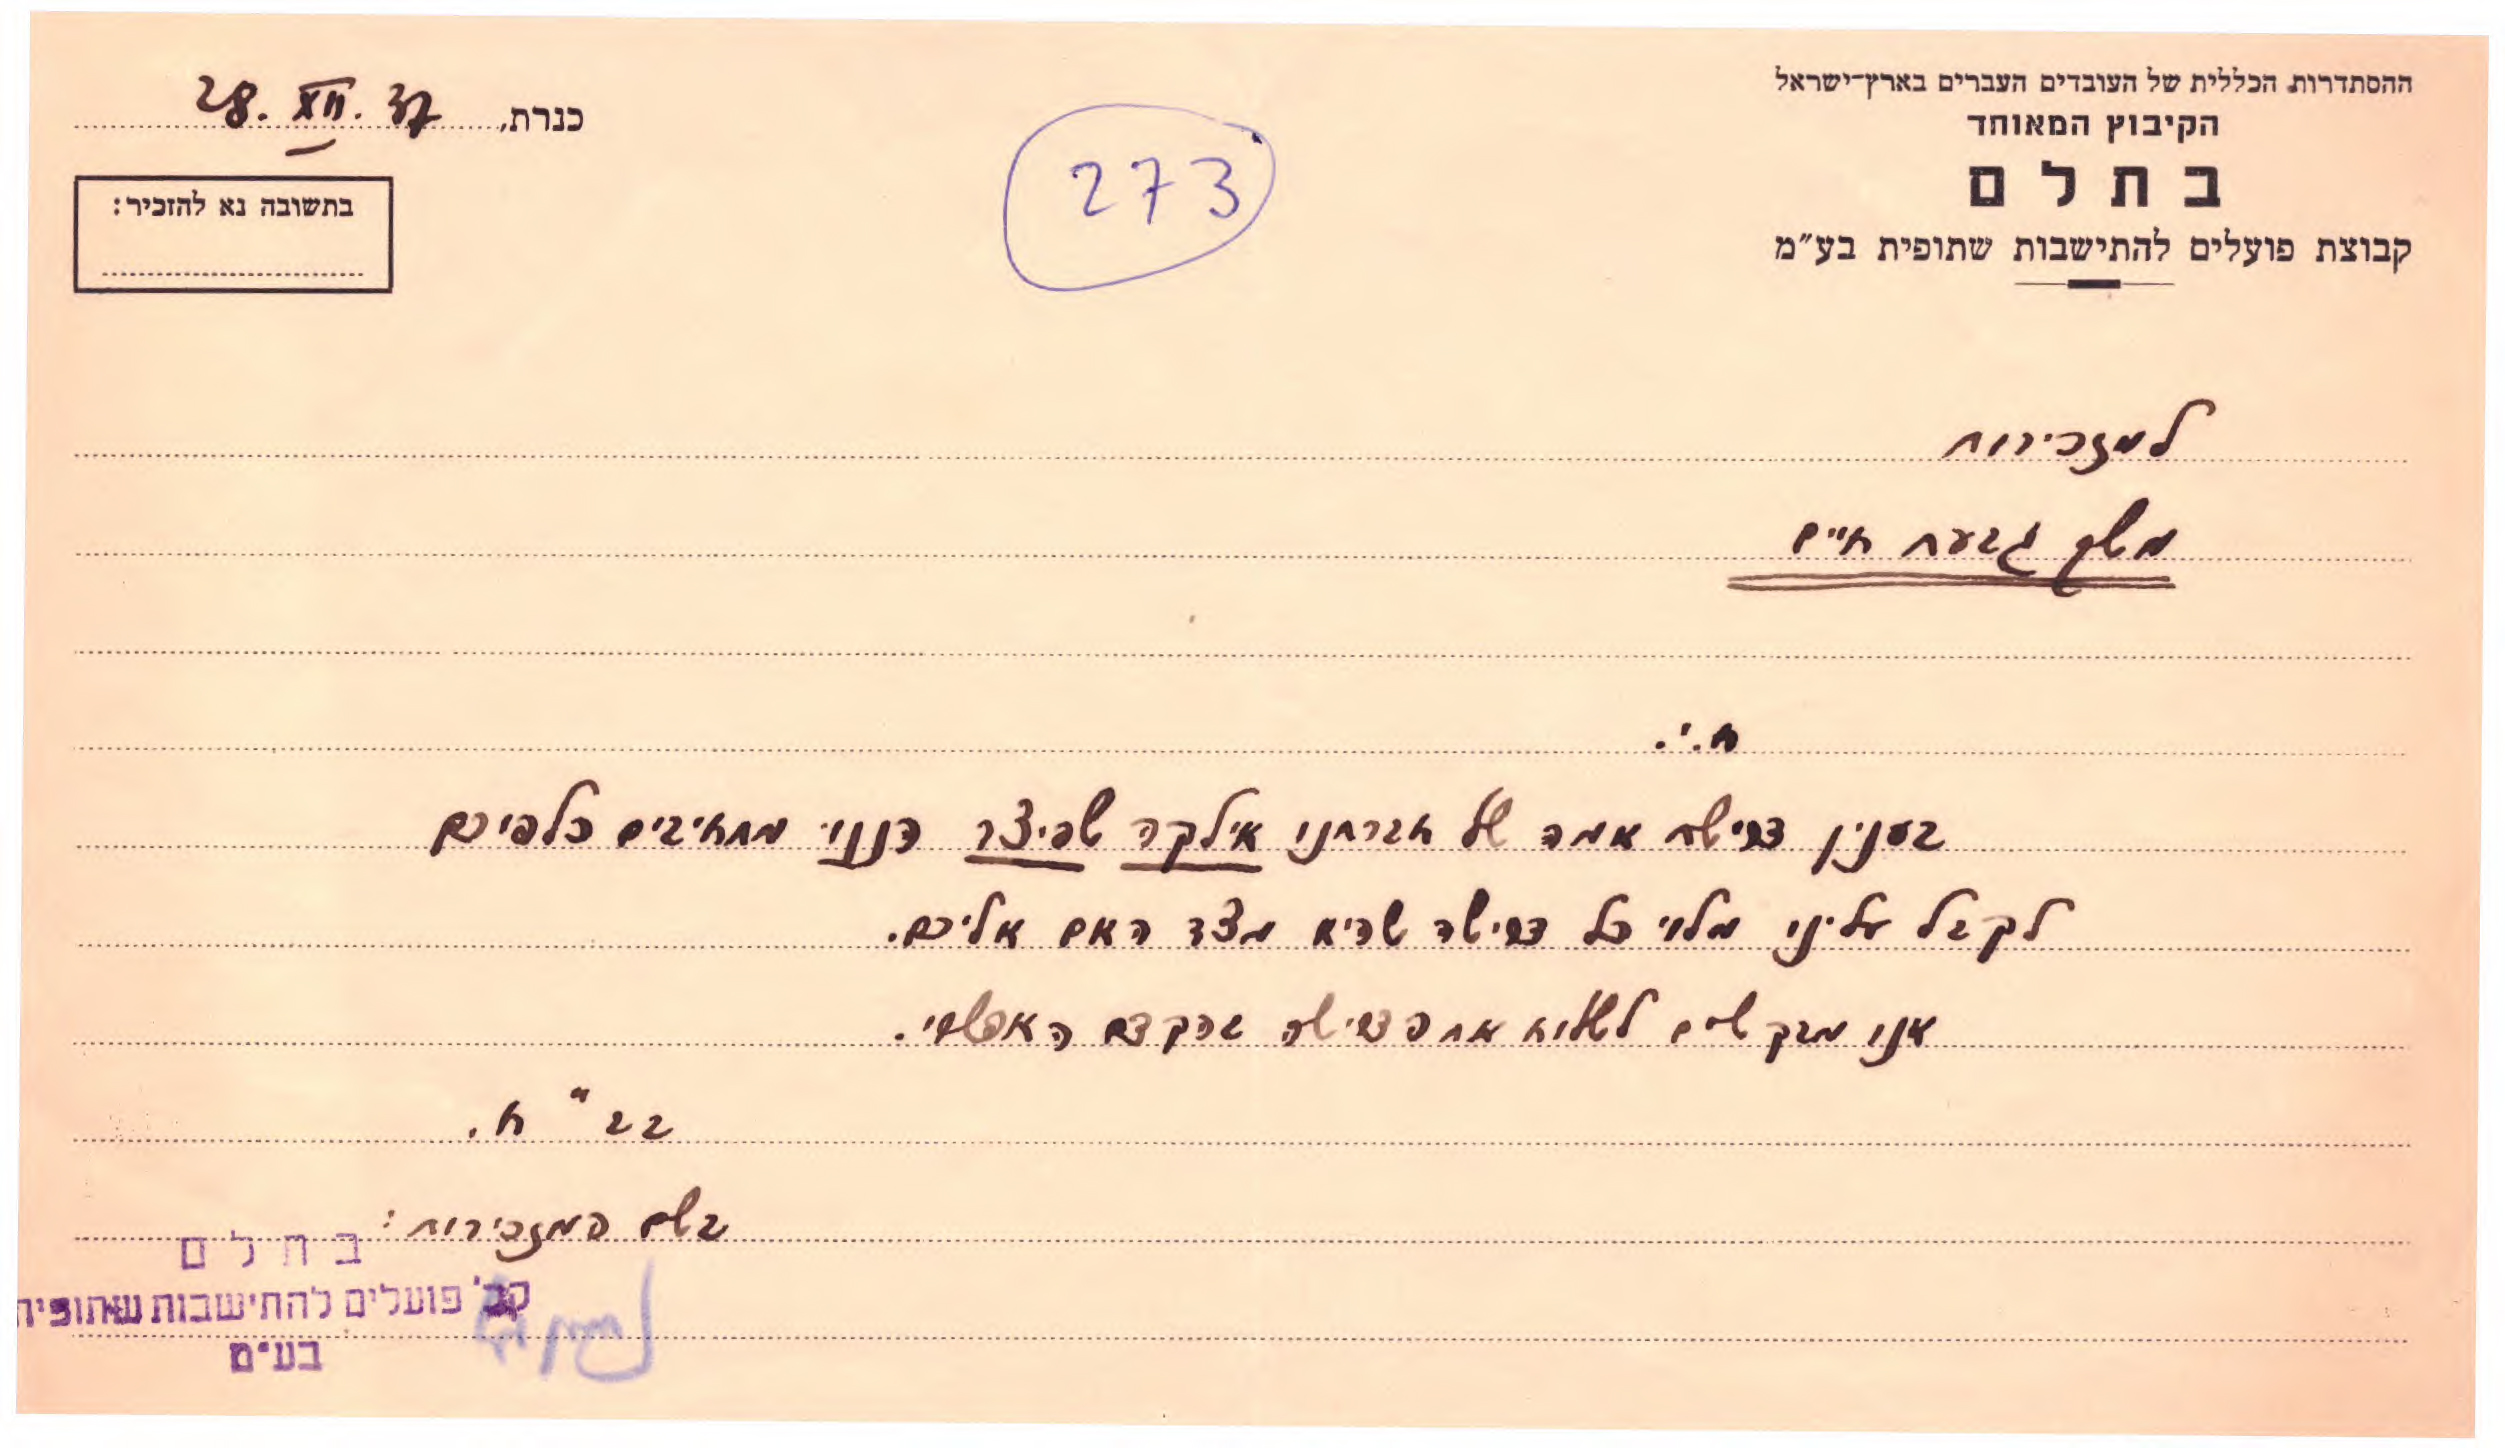 ההסתדרות הכללית של העובדים העברים בארץ-ישראל
הקיבוץ המאוחד
בתלם
קבוצת פועלים להתישבות שתופית בע"מ
כנרת, 28. XII. 37
בתשובה נא להזכיר:
273
למזכירות
משק גבעת חיים
ח.י.
בענין דרישת אמה של חברתנו אילקה שפיצר הננו מתחיבים כלפיכם
לקבל עלינו מלוי כל דרישה שהיא מצד האם אליכם.
אנו מבקשים לשלוח את הדרישה בהקדם האפשרי.
בב"ח.
בשם המזכירות:
בתלם
קב' פועלים להתישבות שתופית
בע"מ